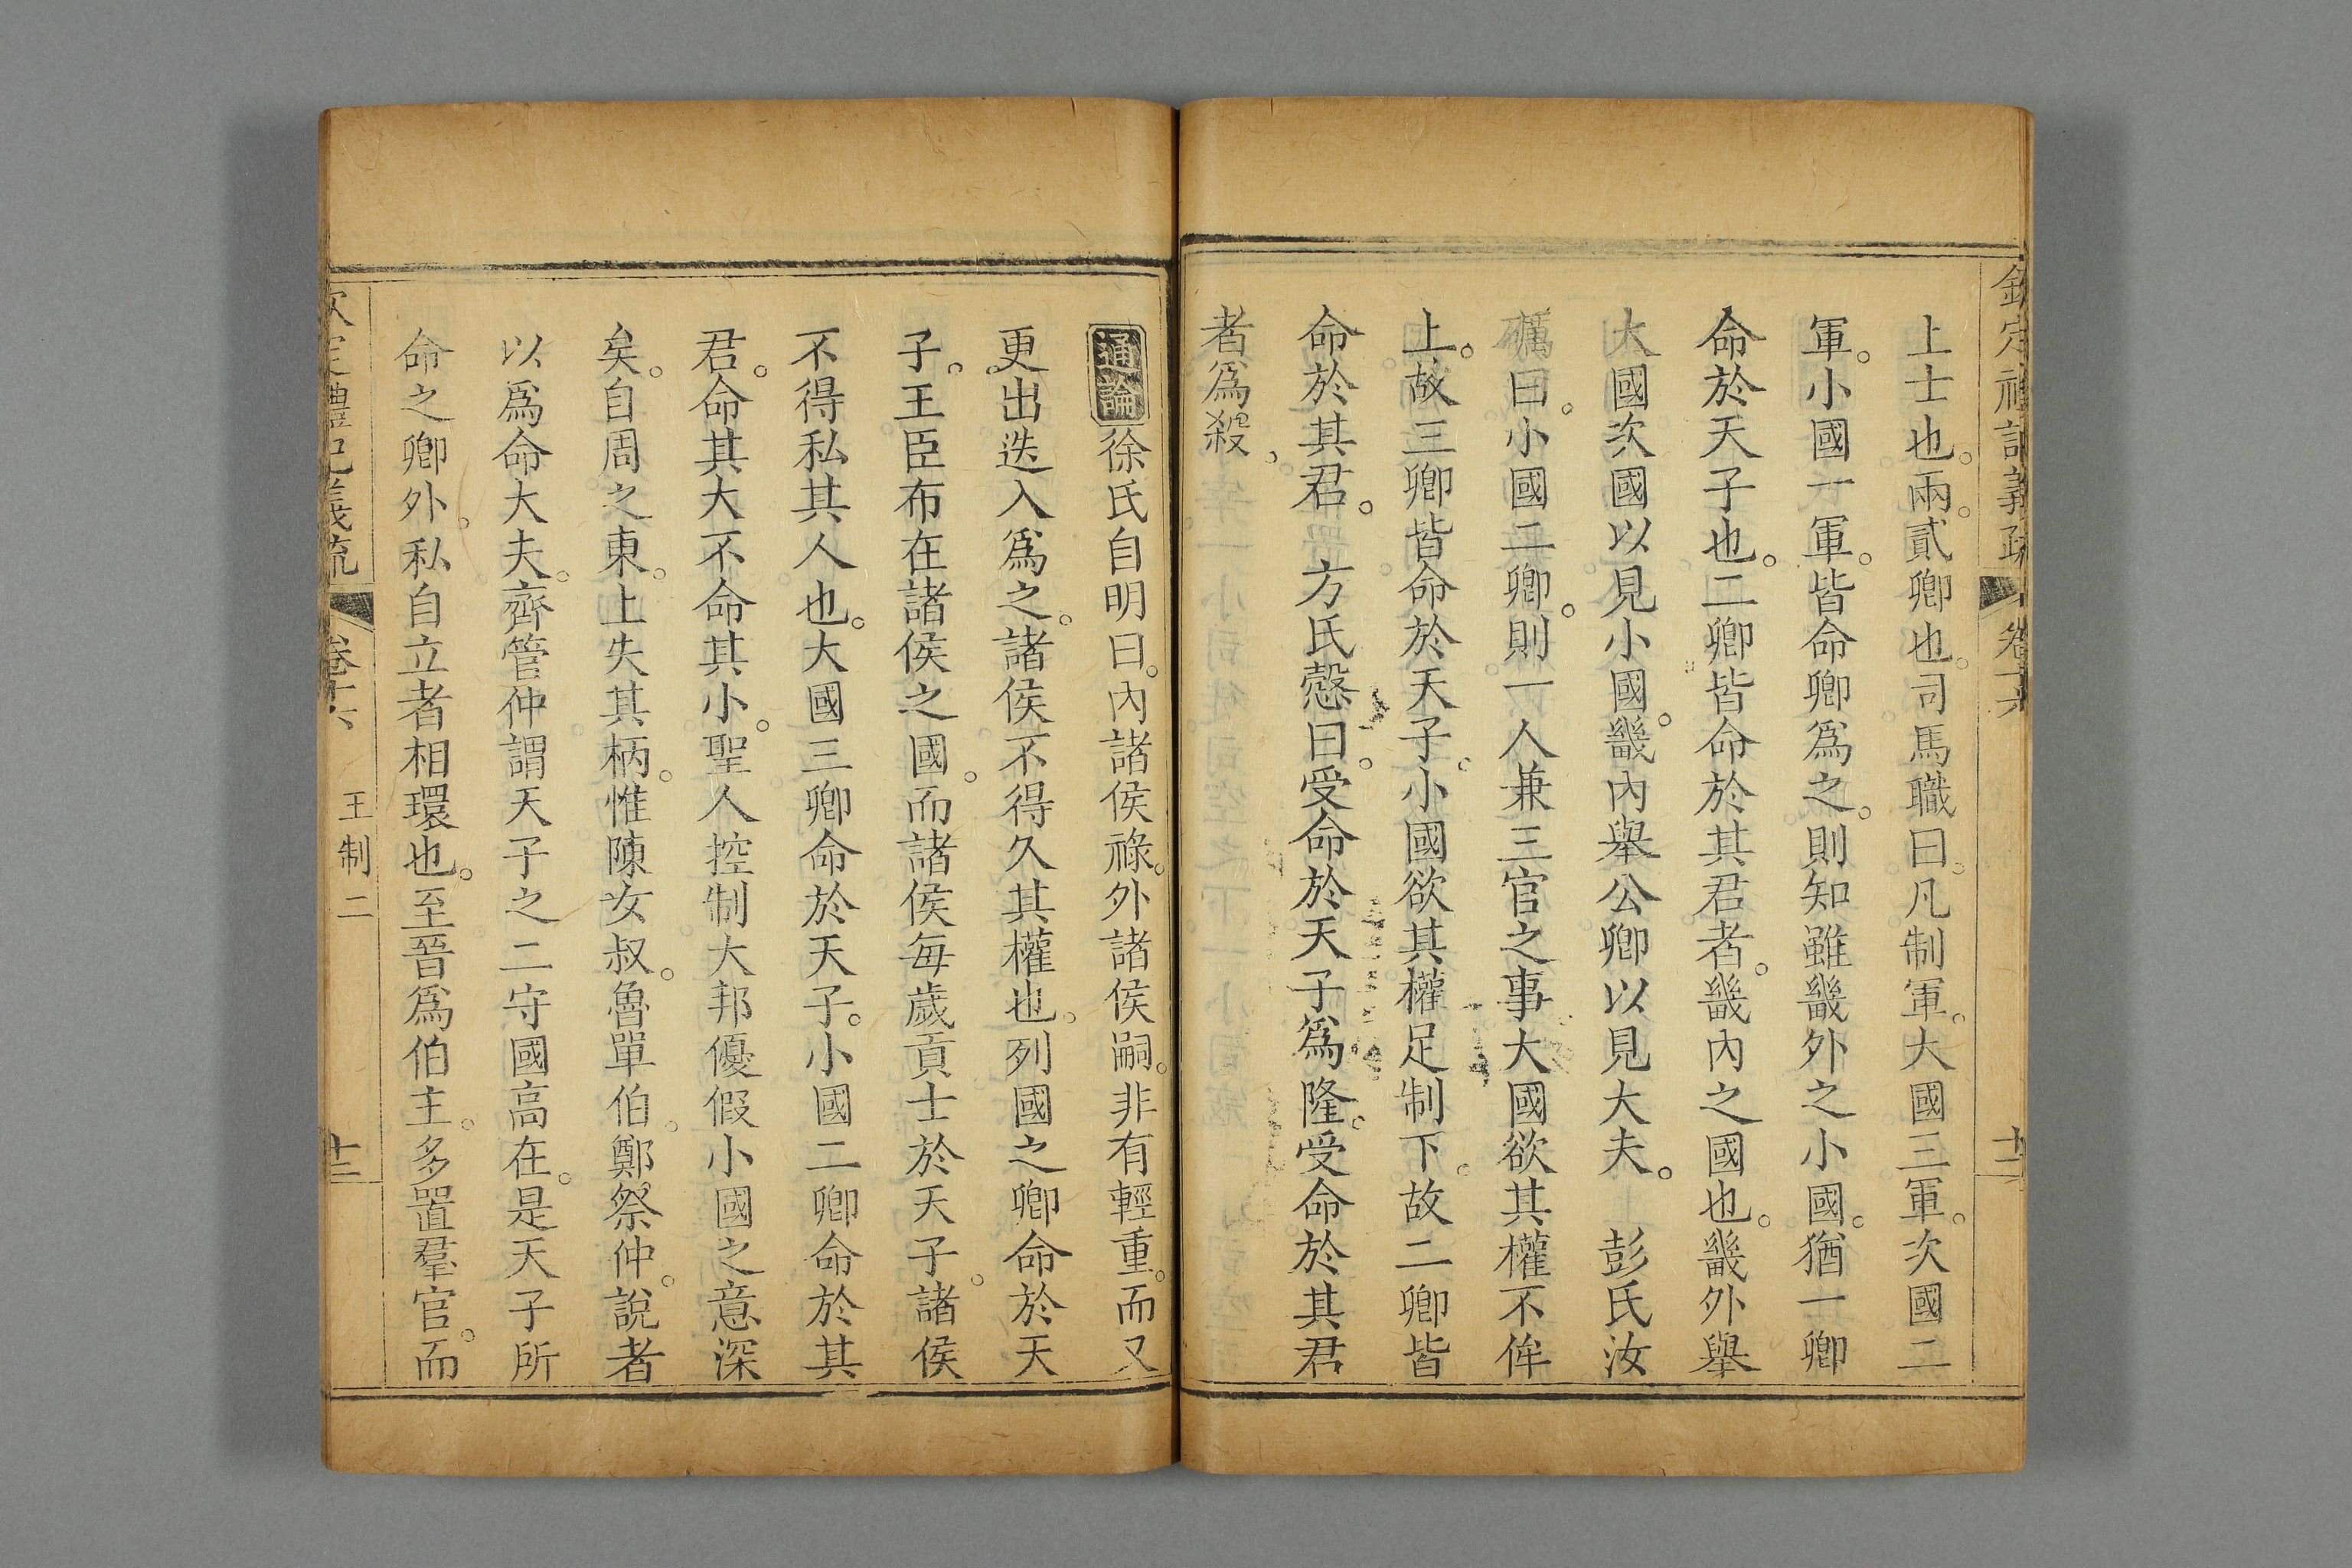 欽定禮記義疏 卷十六 十二
上士也。兩。貳卿也。司馬職曰。凡制軍。大國三軍。次國二
軍。小國一軍。皆命卿爲之。則知雖畿外之小國。猶一卿
命於天子也。二卿皆命於其君者。畿內之國也。畿外舉
大國次國以見小國。畿內舉公卿以見大夫。 彭氏汝
礪曰。小國二卿。則一人兼三官之事大國欲其權不侔
上。故三卿皆命於天子。小國欲其權足制下。故二卿皆
命於其君。 方氏慤曰。受命於天子爲隆。受命於其君
者爲殺。
通論 徐氏自明曰。內諸侯祿。外諸侯嗣。非有輕重。而又
更出迭入爲之。諸侯不得久其權也。列國之卿命於天
子。王臣布在諸侯之國。而諸侯每歲貢士於天子。諸侯
不得私其人也。大國三卿命於天子。小國二卿命於其
君。命其大不命其小。聖人控制大邦優假小國之意深
矣。自周之東。上失其柄。惟陳女叔。魯單伯。鄭祭仲。說者
以爲命大夫。齊管仲謂天子之二守國高在。是天子所
命之卿外。私自立者相環也。至晉爲伯主。多置羣官。而
欽定禮記義疏 卷十六 王制二 十三